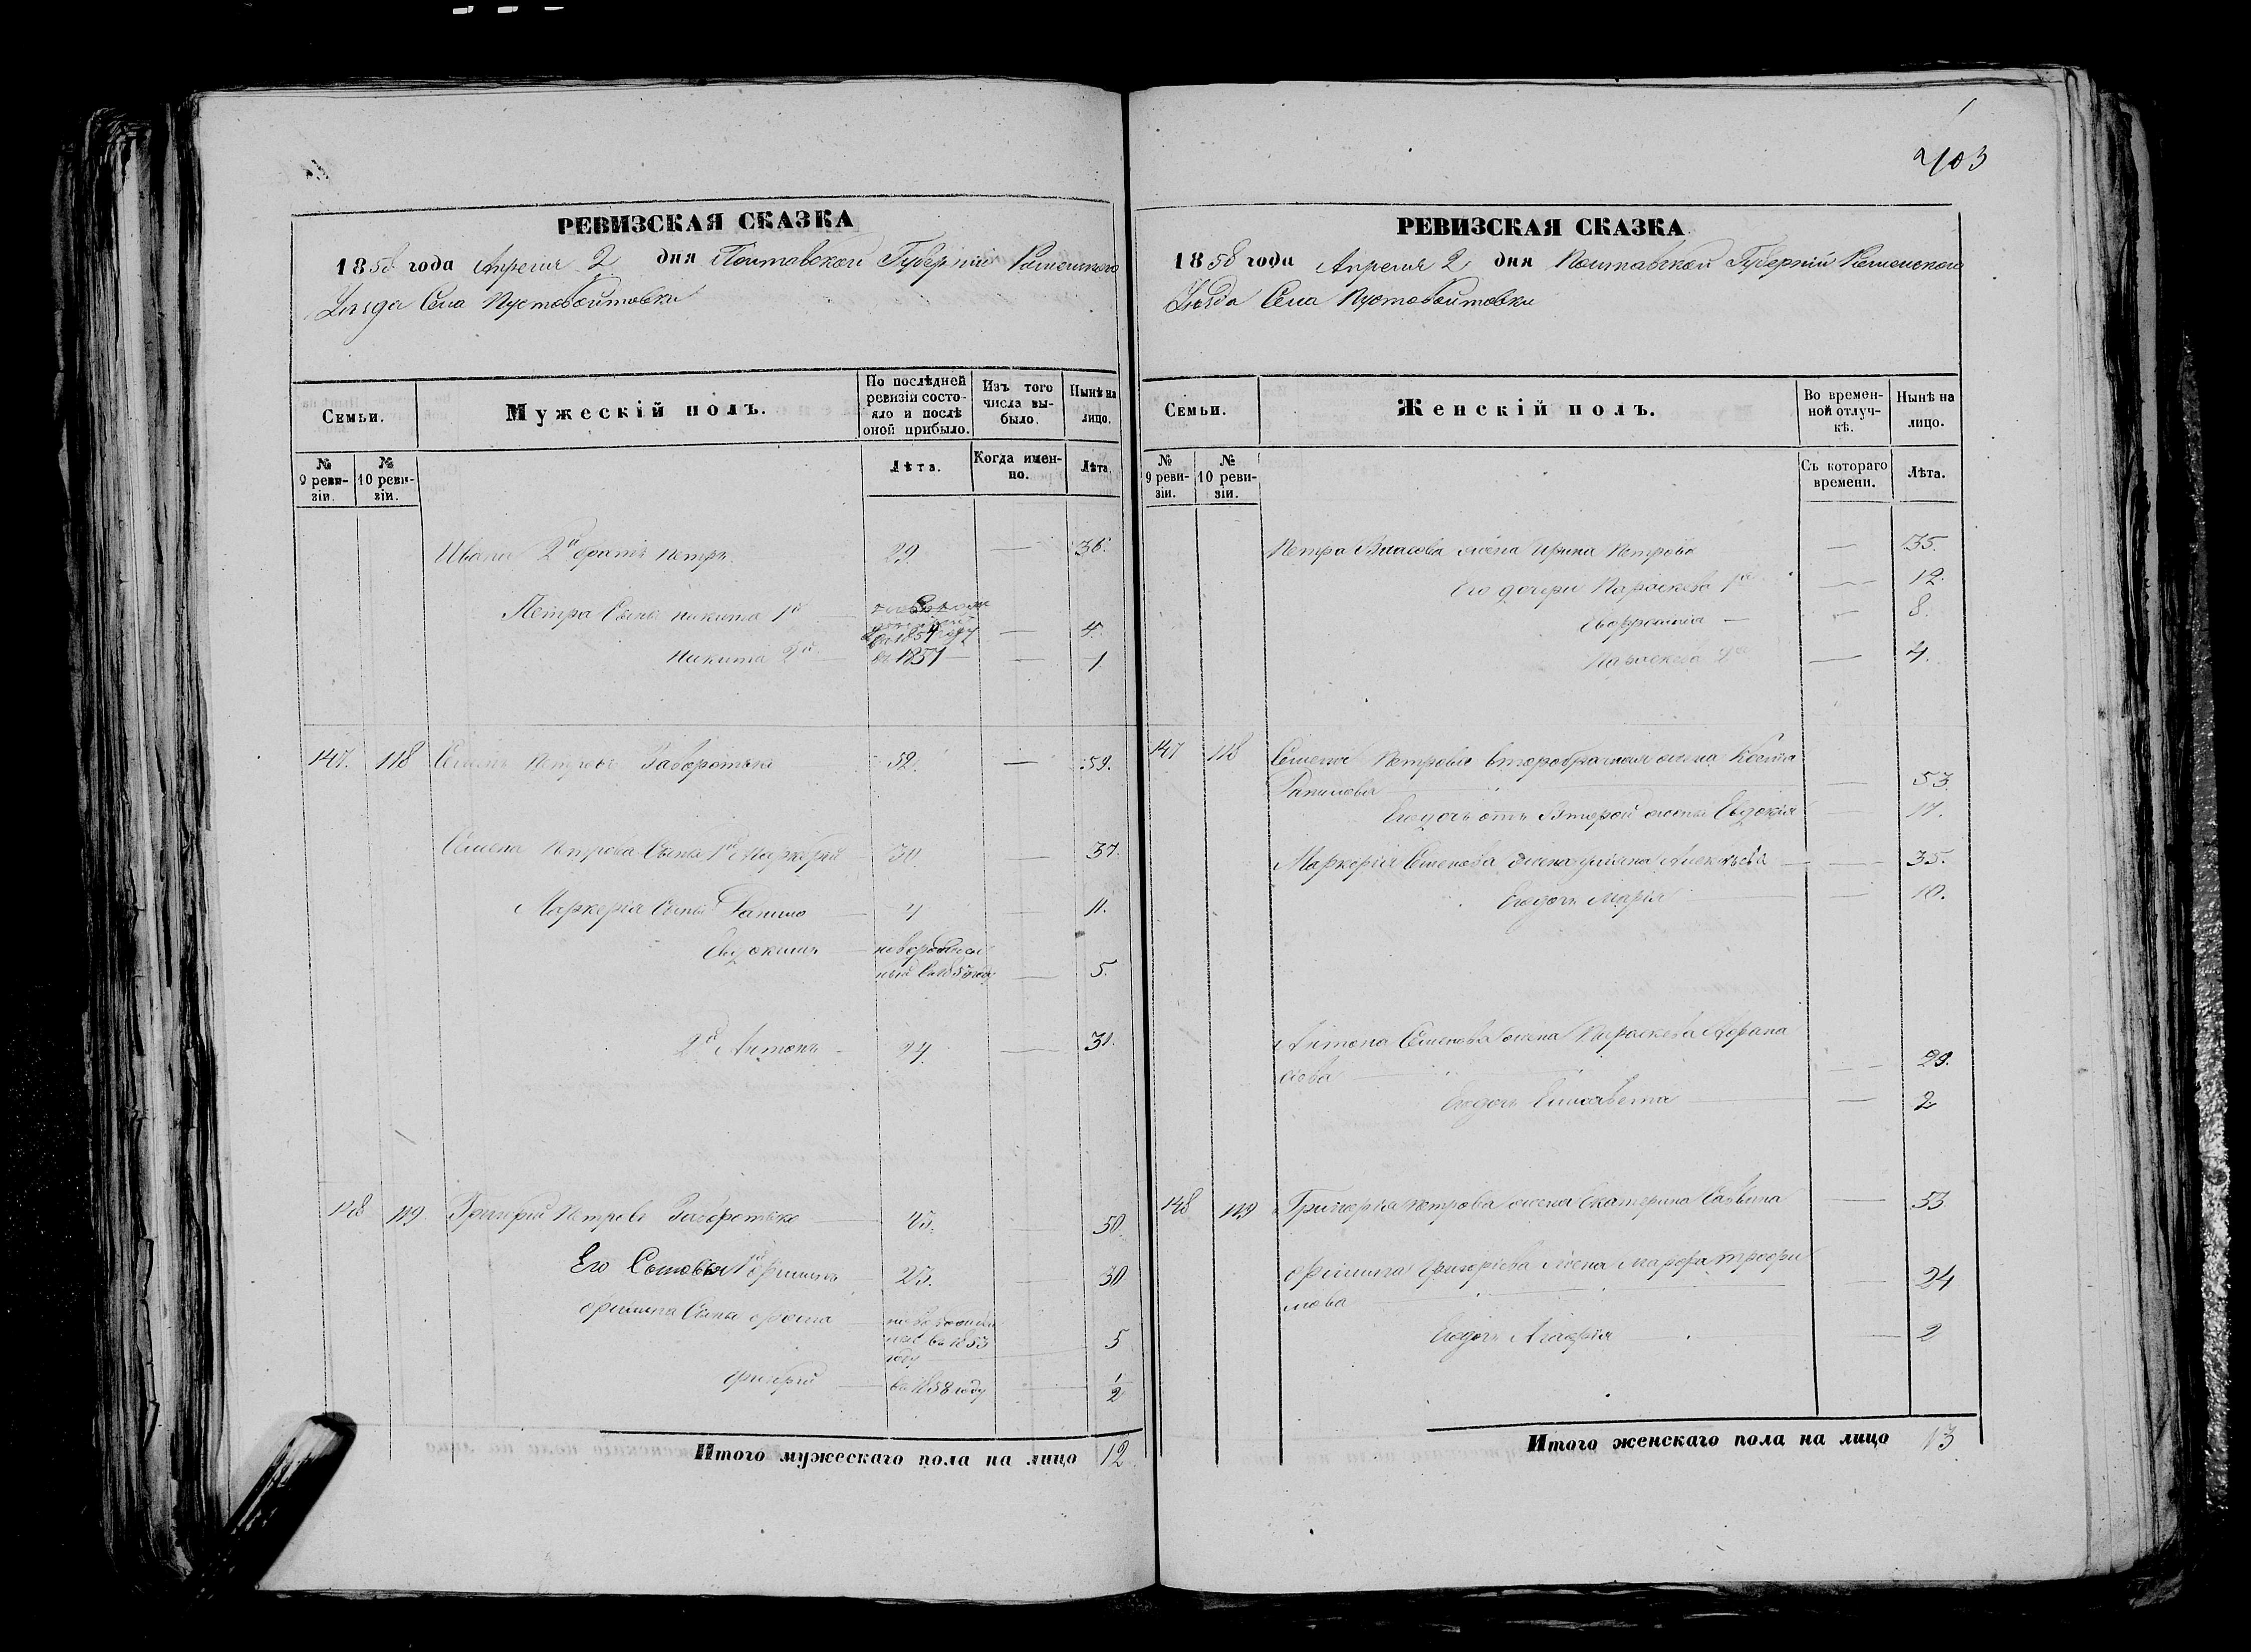 403
РЕВИЗСКАЯ СКАЗКА
1858 года Апреля 2 дня Полтавской Губерніи Роменского
Уѣзда Села Пустовойтовки
Семьи.
Мужескій полъ.
По послѣдней ревизіи состояло и послѣ оной прибыло.
Изъ того числа выбыло.
Нынѣ на лицо.
№ 9 ревизіи.
№ 10 ревизіи.
Лѣта.
Когда именно.
Лѣта.
Ивана 2й братъ Петръ 29 — 36.
Петра Сыны Никита 1й 1854 году — 4.
Никита 2й въ 1857 — 1
147. 118 Петровъ 52. — 59.
Семена Петрова Сыны 1й Маркерій 30 — 37.
Маркерія Сыны Данило 4 — 11.
Евдокимъ — 5.
2й Антонъ 24 — 31.
148 119. Григорій Петровъ 43. 50.
Его Сыновья 1й Филипъ 23. 30
Филипа Сыны въ 1853 году 5
Григорій въ 1858 году 1/2
Итого мужескаго пола на лицо 12
РЕВИЗСКАЯ СКАЗКА
1858 года Апреля 2 дня Полтавской Губерніи Роменского
Уѣзда Села Пустовойтовки
Семьи.
Женскій полъ.
Во временной отлучкѣ.
Нынѣ на лицо.
№ 9 ревизіи.
№ 10 ревизіи.
Съ котораго времени.
Лѣта.
Петра Власова жена Ирина Петрова — 35.
Его дочери Параскева 1я — 12.
— 8.
Параскева 2я — 4.
147 118 Семена Петрова второбрачная жена
Данилова — 53
Его дочь отъ Второй жены Евдокія 17.
Маркерія Семенова жена Уліяна Алексѣева — 35.
Его дочь Марія — 10.
Антона Семенова жена Параскева Афана
сіева — 29.
Его дочь Елисавета — 2
148 119 Григорія Петрова жена Екатерина Саввина — 53
Филипа Григоріева жена Марфа Трофи
мова — 24
Его дочь Агафія — 2
Итого женскаго пола на лицо 13